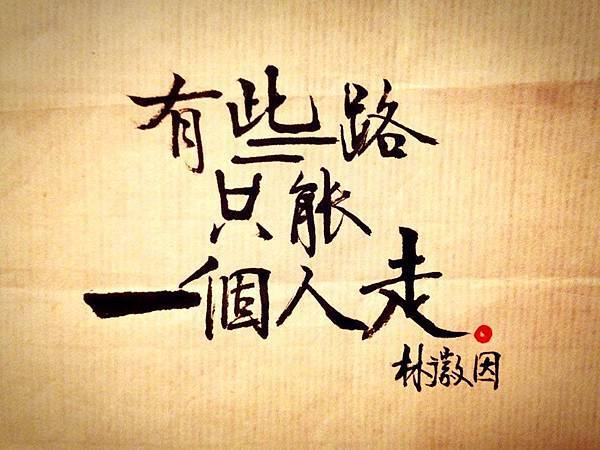 有些路
只能
一個人走。
林徽因